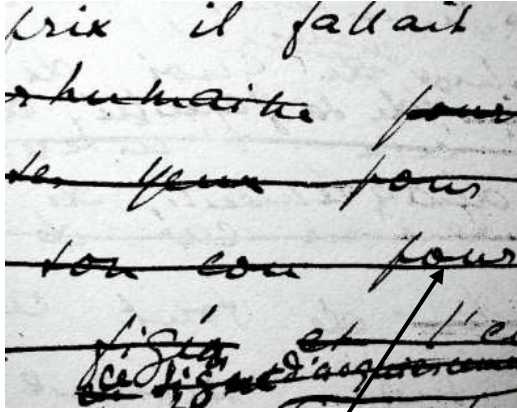 prix il fallait
rhumaine pour
ses yeux pour
son cou pour
figéa et l'ca
ce signe d'acquiesceme